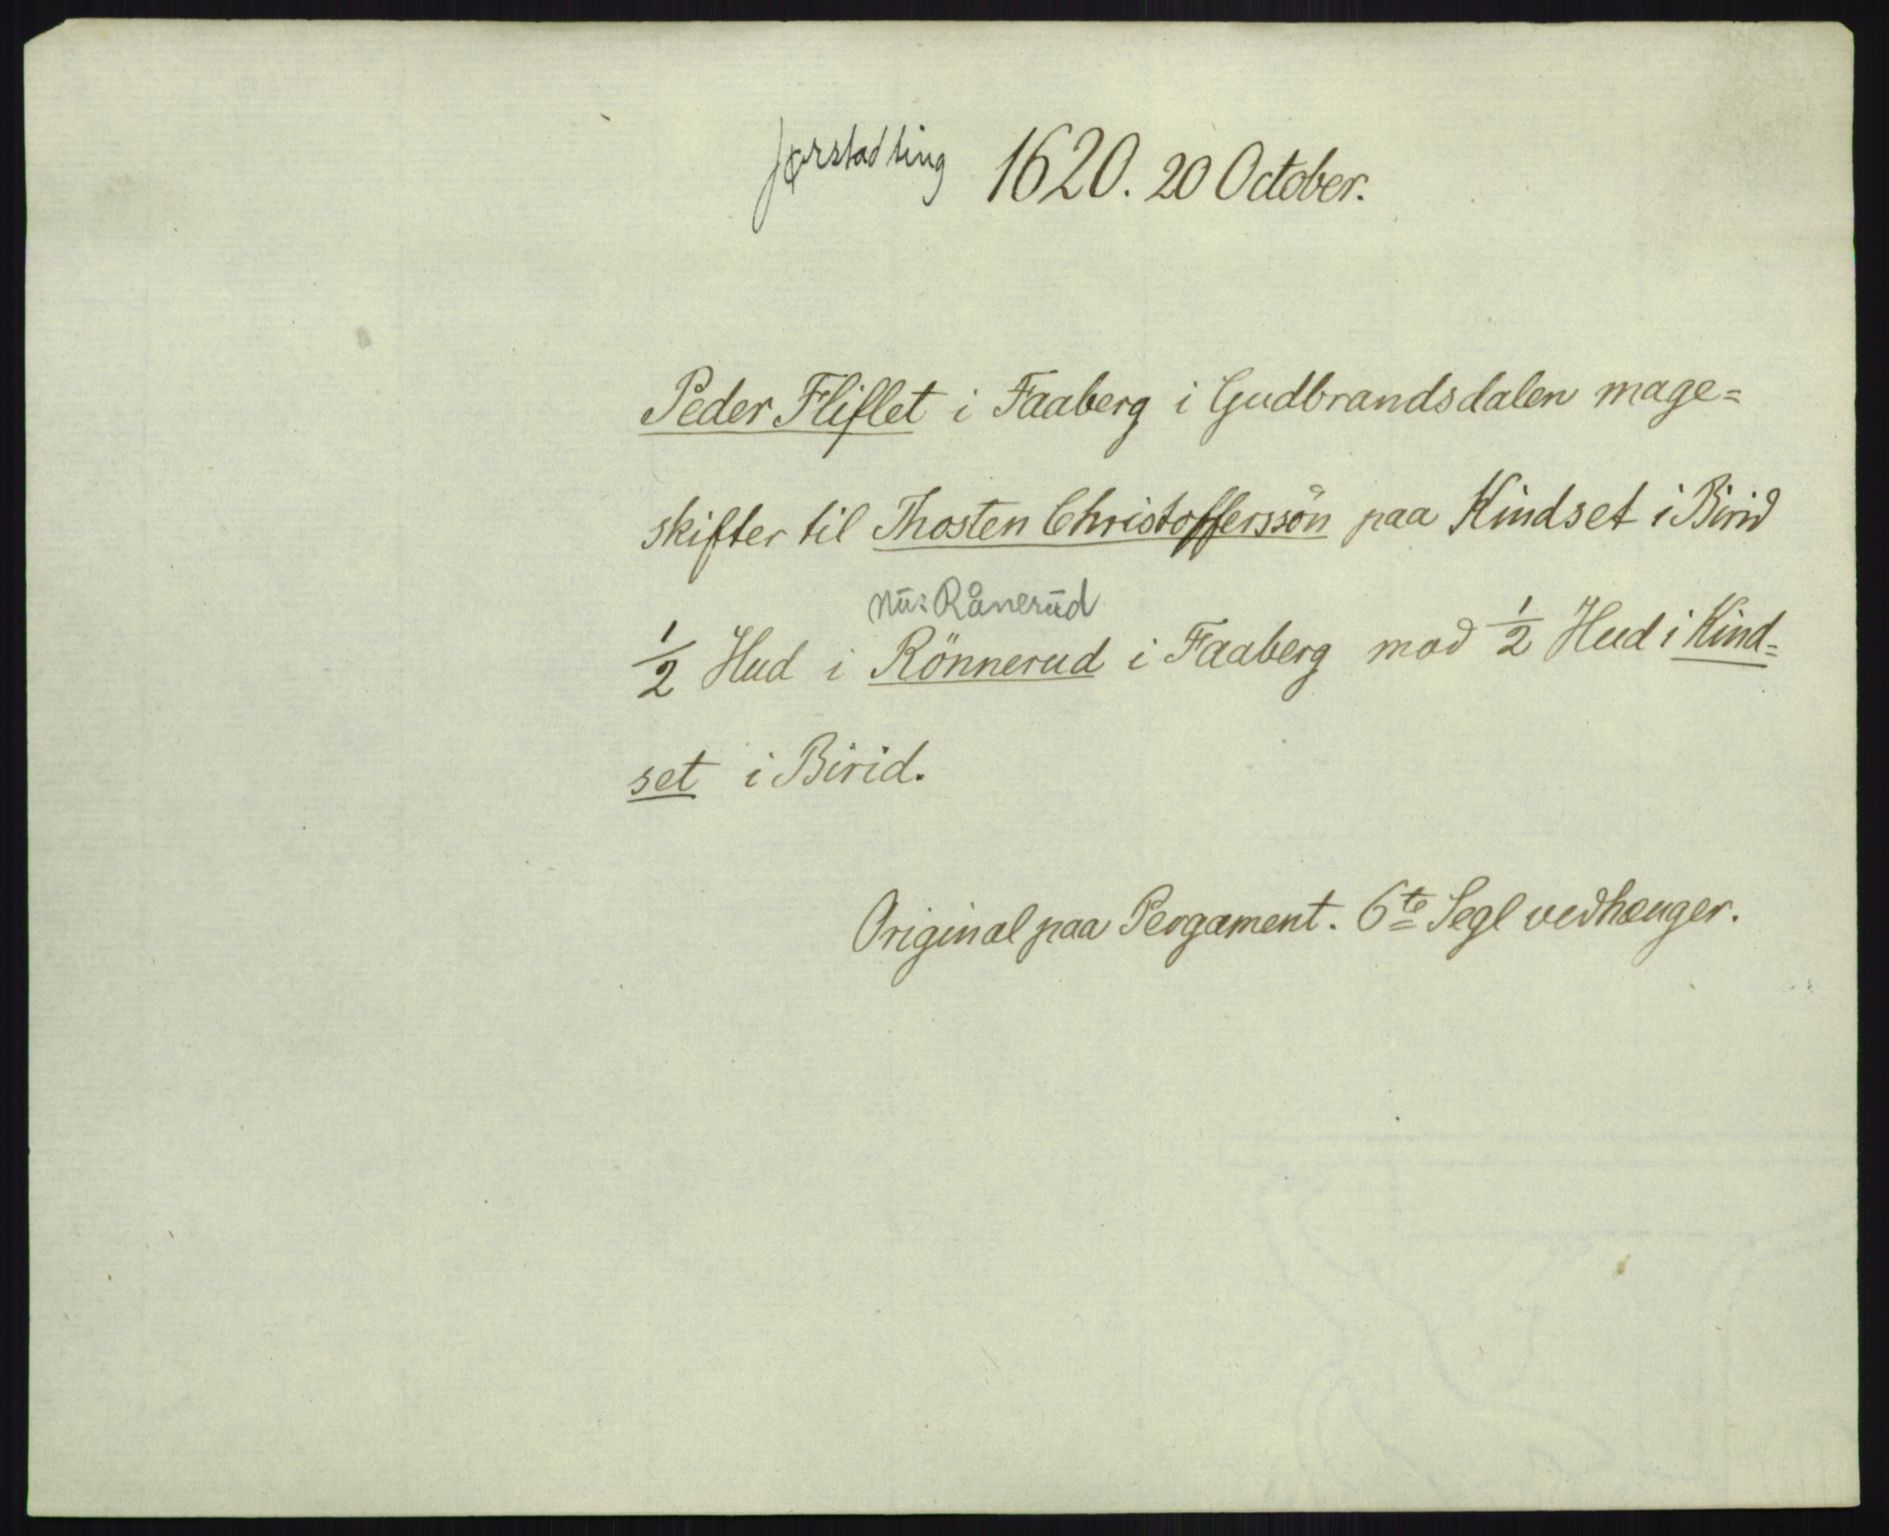 Jørstad ting 1620. 20 October.
Peder Fliflet i Faaberg i Gudbrandsdalen mage=
skifter til Thosten Christofferssön paa Kindset i Birid
nu: Rånerud
1/2 Hud i Rönnerud i Faaberg mod 1/2 Hud i Kind=
set i Birid.
Original paa Pergament. 6te Segl vedhænger.